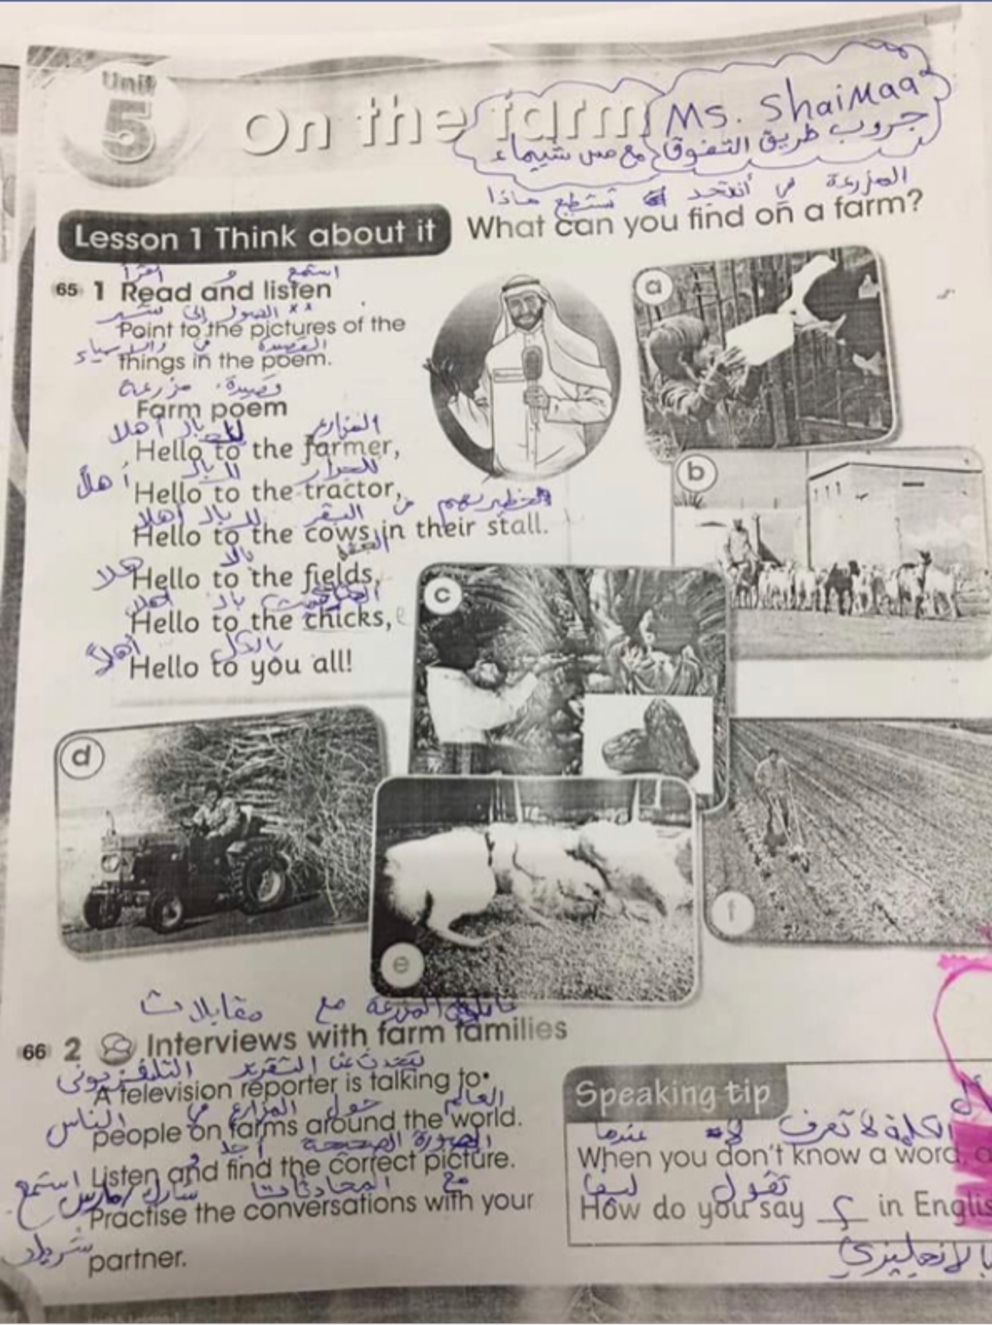 Unit
5
On the farm
Ms. Shaimaa
جروب طريق التفوق مع مس شيماء
المزرعة في أن تجد تستطيع ماذا
Lesson 1 Think about it
What can you find on a farm?
اقرأ و استمع
65 1 Read and listen
الصور إلى
Point to the pictures of the
القصيدة في
things in the poem.
قصيدة مزرعة
Farm poem
أهلا بال
Hello to the farmer,
أهلاً
Hello to the tractor,
أهلا بال البقر من
Hello to the cows in their stall.
هلا
Hello to the fields,
أهلا بال
Hello to the chicks,
أهلاً بالكل
Hello to you all!
a
b
c
d
e
f
مقابلات مع المزرعة
66 2 Interviews with farm families
التلفزيونى
A television reporter is talking to
الناس في المزارع حول العالم
people on farms around the world.
استمع و أجد الصورة الصحيحة
Listen and find the correct picture.
شارك/مارس المحادثات مع
Practise the conversations with your
partner.
Speaking tip
عندما لا تعرف الكلمة
When you don't know a word, a
تقول
How do you say ؟ in Englis
بالانجليزي